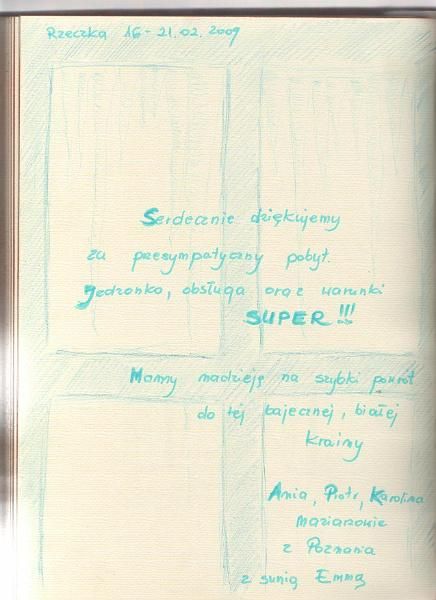 Rzeczka 16-21.02.2009
Serdecznie dziękujemy
za przesympatyczny pobyt.
Jedzonko, obsługa oraz warunki
SUPER!!!
Mamy nadzieję na szybki powrót
do tej bajecznej, białej
krainy
Ania, Piotr, Karolina
z Poznania
z sunią Emmą